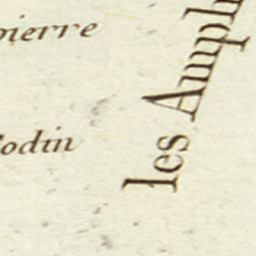 pierre
odin
les Ampl